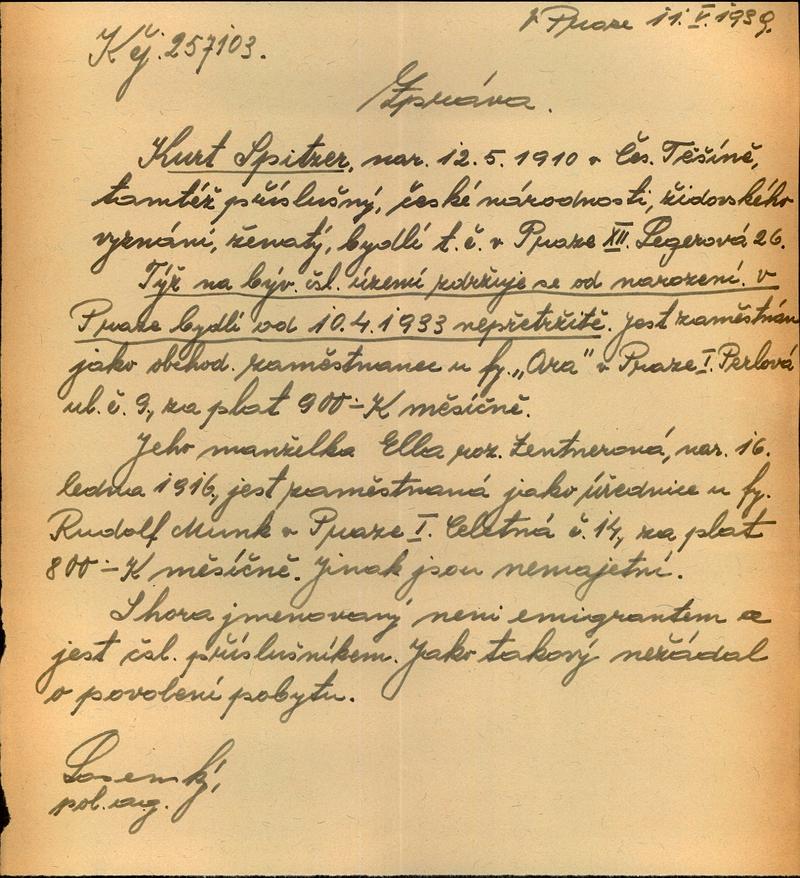 V Praze 11.V.1939.
K čj. 257103.
Zpráva.
Kurt Spitzer, nar. 12.5.1910 v Čes. Těšíně,
tamtéž příslušný, české národnosti, židovského
vyznání, ženatý, bydlí t.č. v Praze XII. Legerová 26.
Týž na býv. čsl. území zdržuje se od narození. v
Praze bydlí od 10.4.1933 nepřetržitě. Jest zaměstnán
jako obchod. zaměstnanec u fy. „Ara" v Praze I. Perlová
ul. č. 9, za plat 900-K měsíčně.
Jeho manželka Ella roz. Zentnerová, nar. 16.
ledna 1916, jest zaměstnaná jako úřednice u fy.
Rudolf Munk v Praze I. Celetná č. 14, za plat
800-K měsíčně. Jinak jsou nemajetní.
Shora jmenovaný neni emigrantem a
jest čsl. příslušníkem. Jako takový nežádal
o povolení pobytu.
pol. ag.